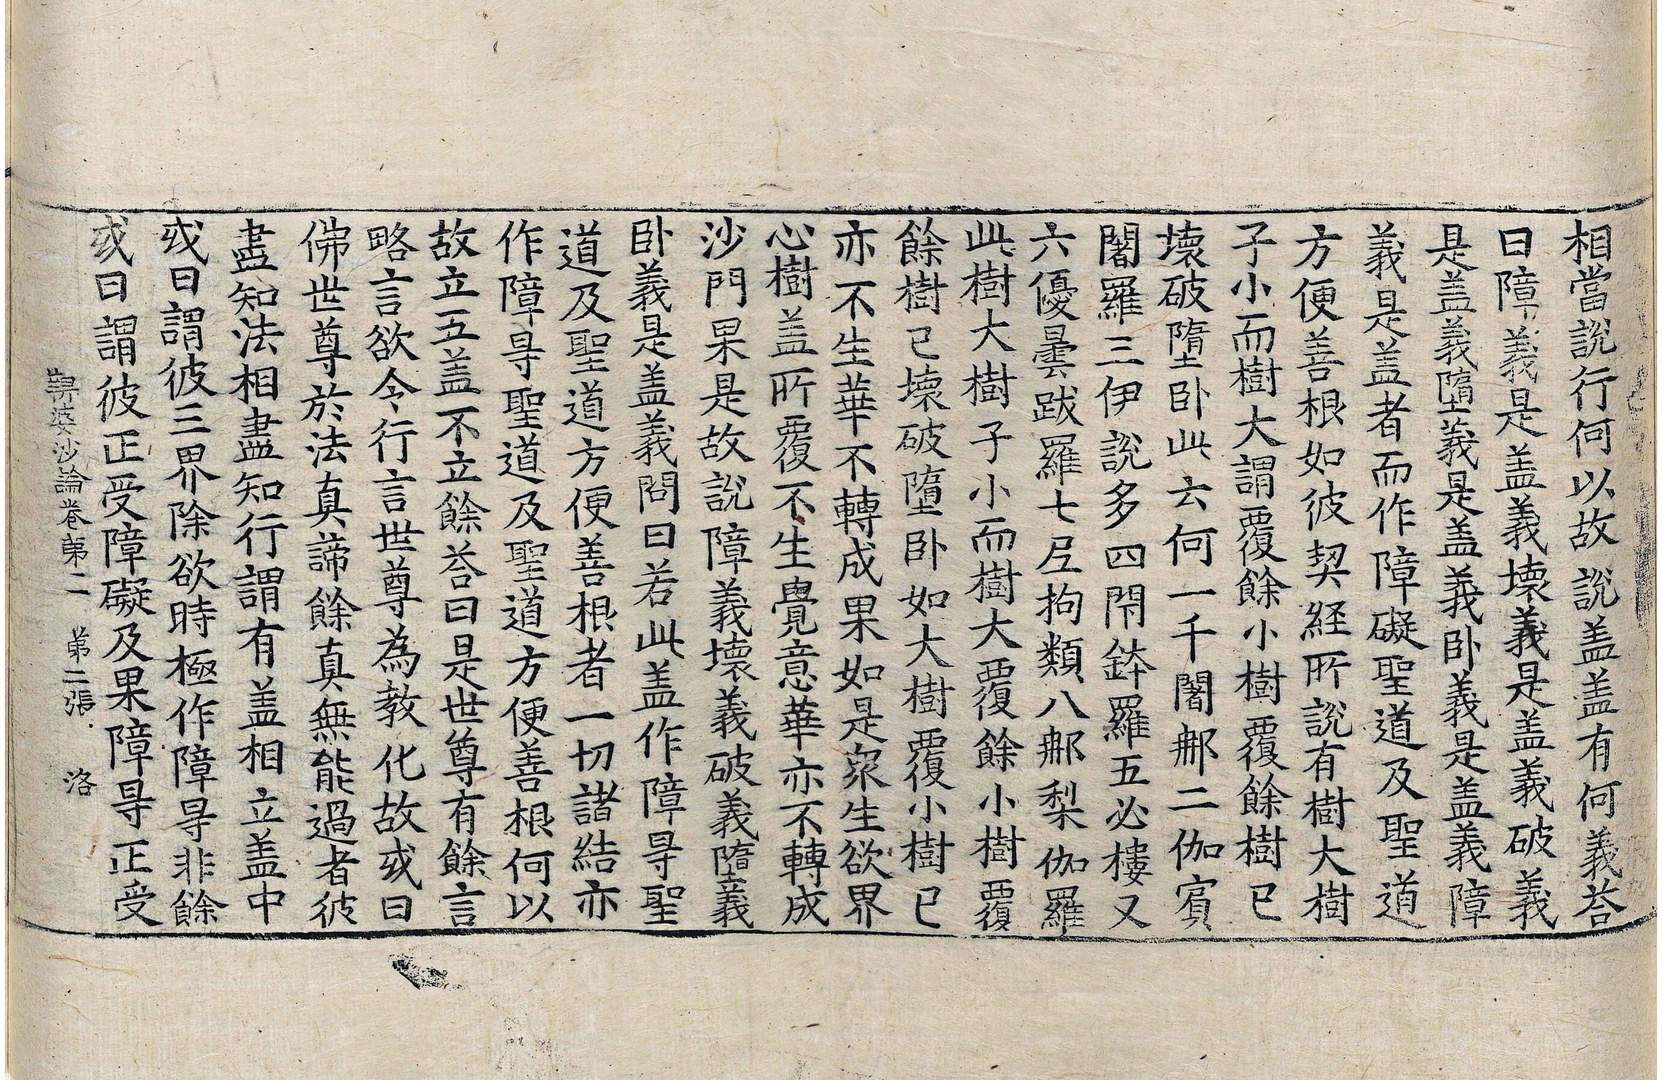 相當說行何以故說盖盖有何義荅
曰障義是盖義壞義是盖義破義
是盖義墮義是盖義卧義是盖義障
義是盖者而作障礙聖道及聖道
方便善根如彼契経所說有樹大樹
子小而樹大謂覆餘小樹覆餘樹已
壞破墮卧此云何一千闍𨚗二伽賓
闍羅三伊說多四閇鉢羅五必樓又
六優曇跋羅七𡰱拘類八𨚗梨伽羅
此樹大樹子小而樹大覆餘小樹覆
餘樹已壞破墮卧如大樹覆小樹已
亦不生華不轉成果如是衆生欲界
心樹盖所覆不生覺意華亦不轉成
沙門果是故說障義壞義破義墮義
卧義是盖義問曰若此盖作障㝵聖
道及聖道方便善根者一切諸結亦
作障㝵聖道及聖道方便善根何以
故立五盖不立餘荅曰是世尊有餘言
略言欲令行言世尊為教化故或曰
佛世尊於法真諦餘真無能過者彼
盡知法相盡知行謂有盖相立盖中
或曰謂彼三界除欲時極作障㝵非餘
或曰謂彼正受障礙及果障㝵正受
鞞婆沙論卷第二 第二張 洛